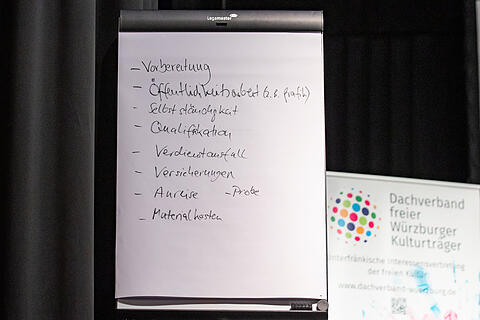 Legamaster
- Vorbereitung
- Öffentlichkeitsarbeit (z.B. Grafik)
- Selbstständigkeit
- Qualifikation
- Verdienstausfall
- Versicherungen
- Anreise - Probe
- Materialkosten
Dachverband
freier
Würzburger
Kulturträger
Unterfränkische Interessensvertretung
der freien Kultur
www.dachverband-wuerzburg.de